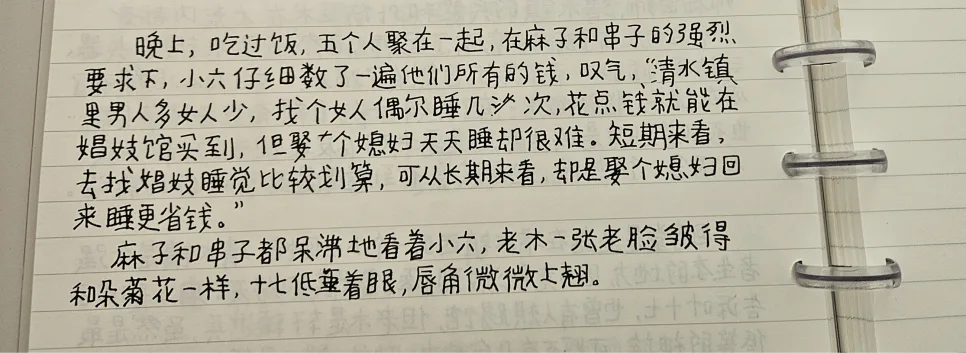 晚上，吃过饭，五个人聚在一起，在麻子和串子的强烈
要求下，小六仔细数了一遍他们所有的钱，叹气，“清水镇
里男人多女人少，找个女人偶尔睡几次，花点钱就能在
娼妓馆买到，但娶个媳妇天天睡却很难。短期来看，
去找娼妓睡觉比较划算，可从长期来看，却是娶个媳妇回
来睡更省钱。”
麻子和串子都呆滞地看着小六，老木一张老脸皱得
和朵菊花一样，十七低垂着眼，唇角微微上翘。